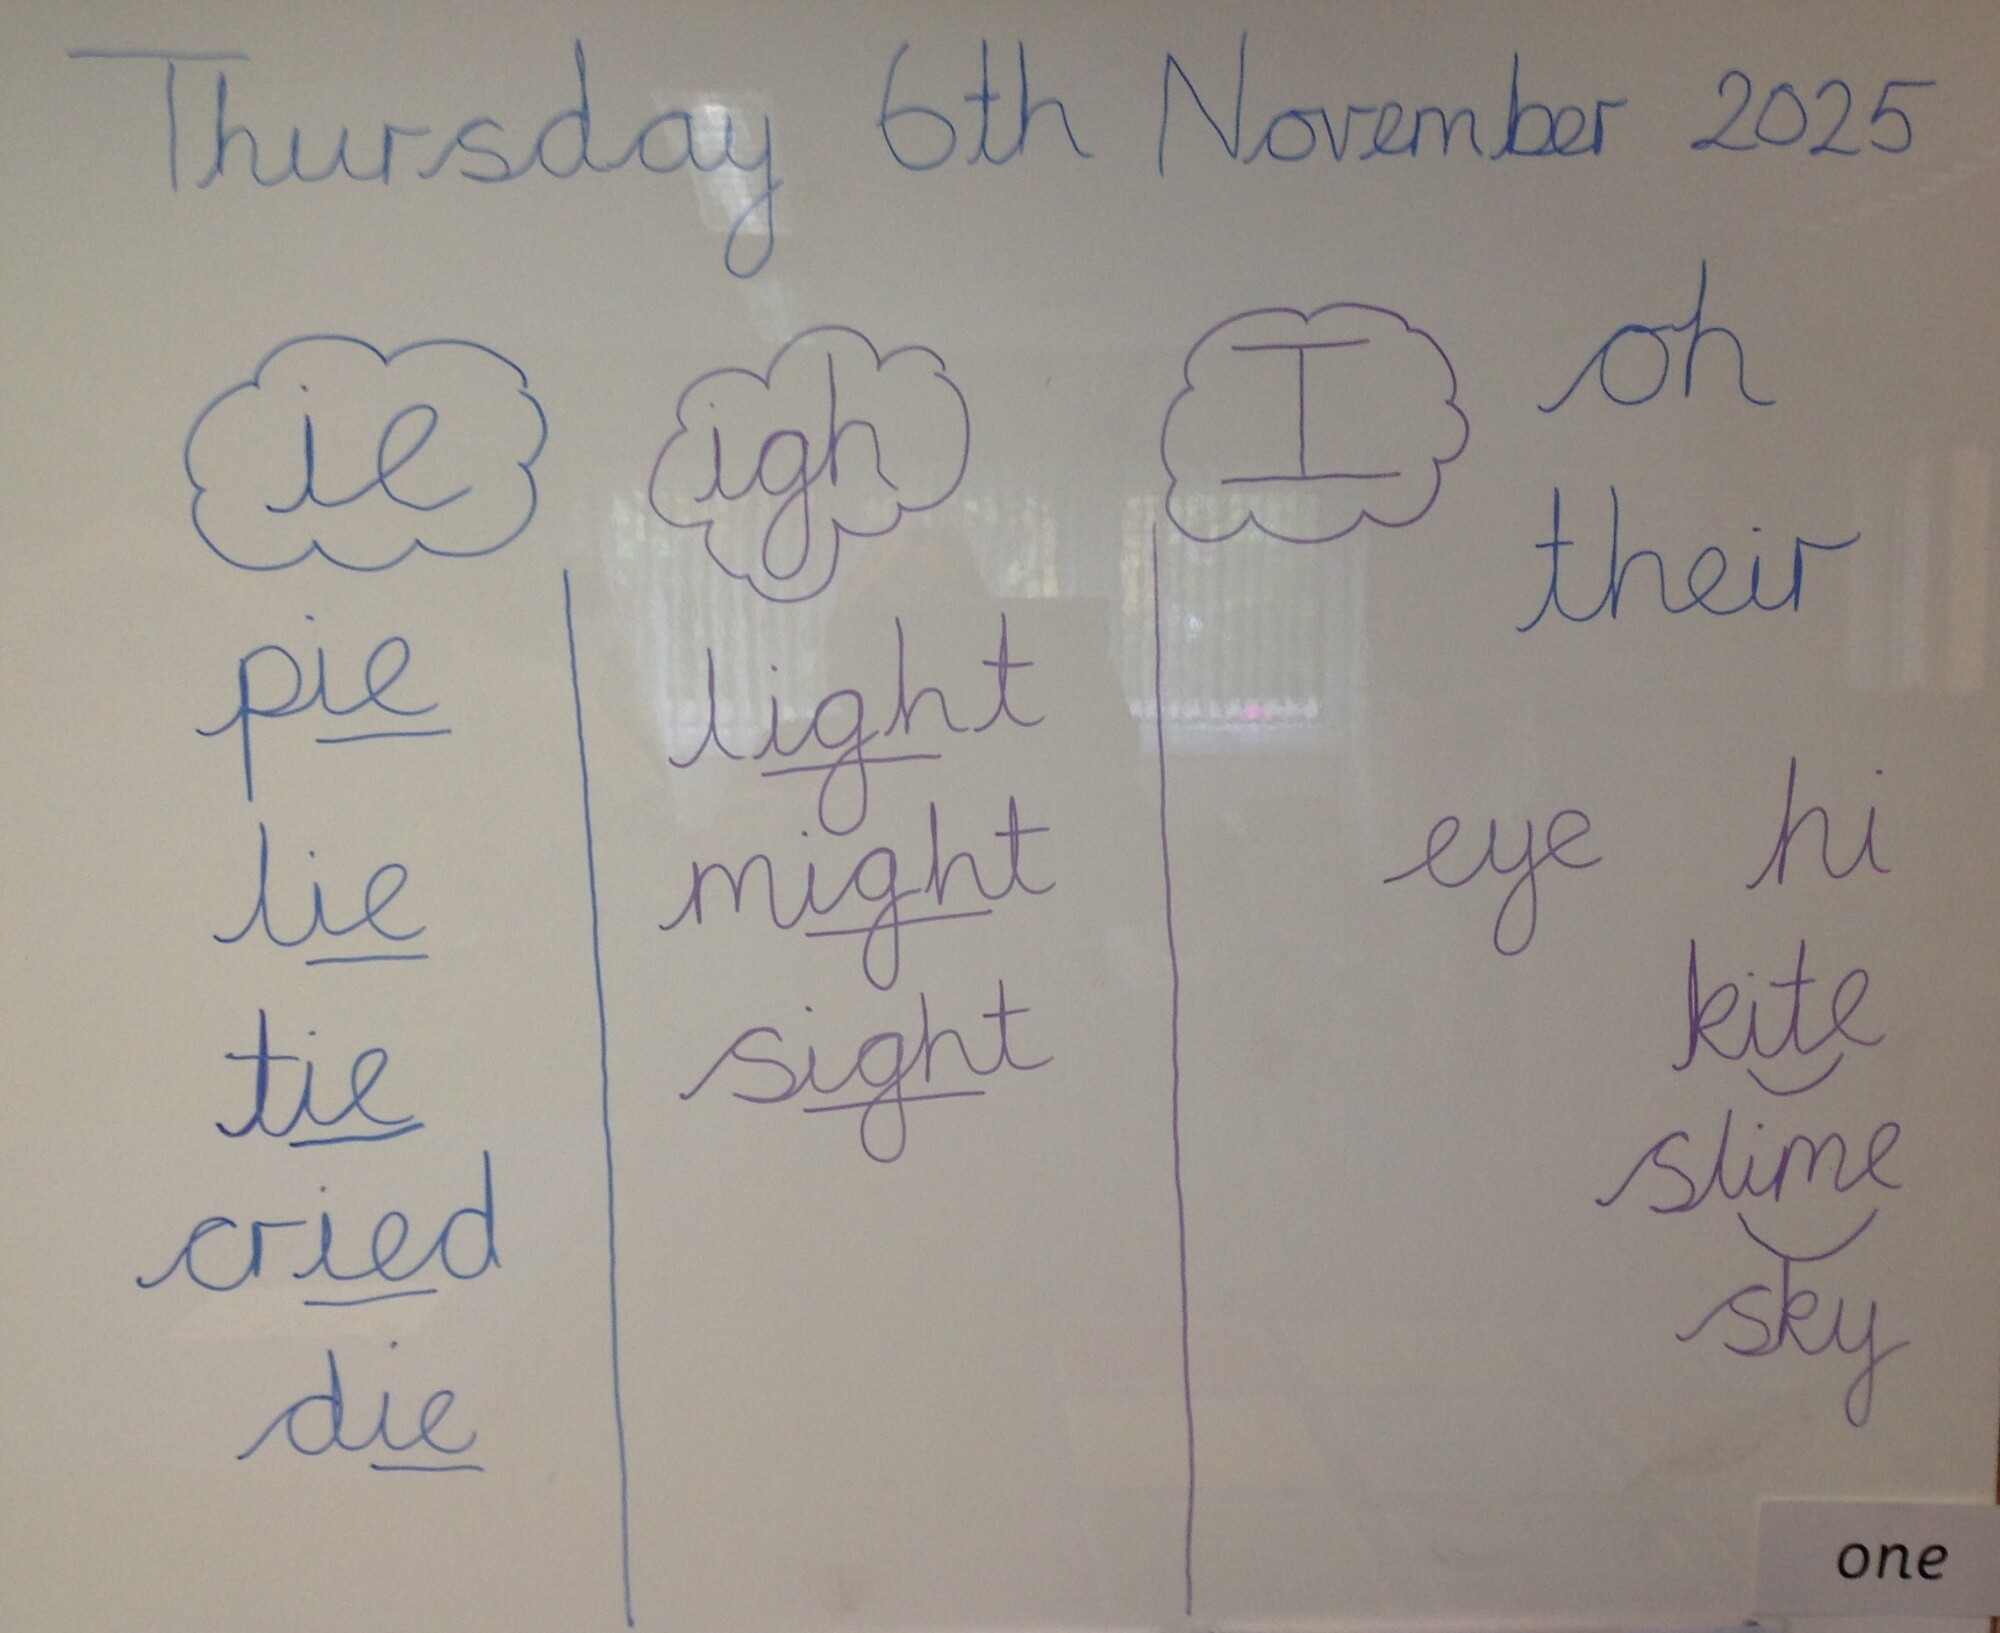 Thursday 6th November 2025
ie
igh
I
oh
their
pie
light
lie
might
eye hi
tie
sight
kite
cried
slime
die
sky
one